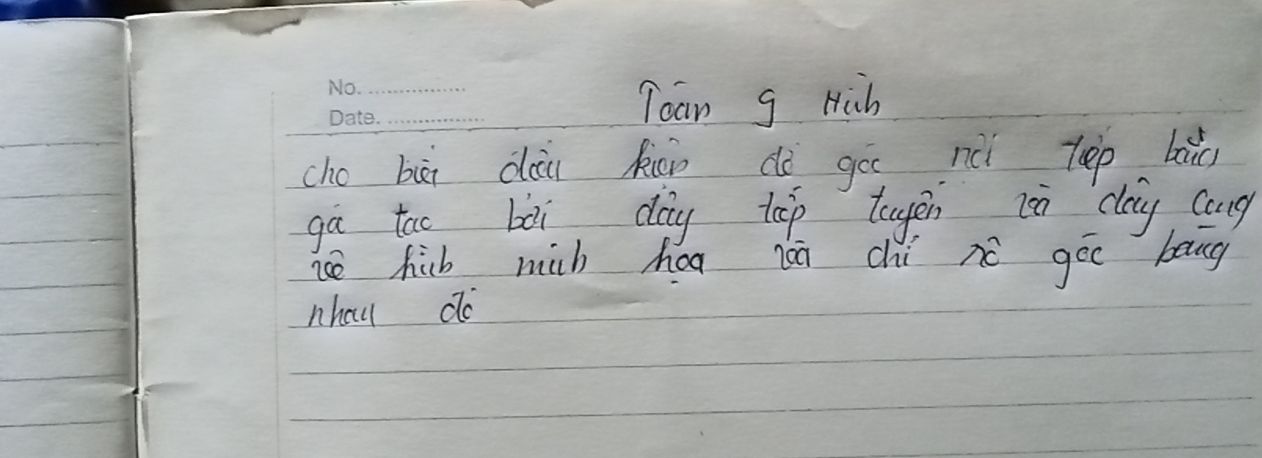 No. ................
Date. ................
Toán 9 Hình
cho biết điều kiện để góc nội tiếp bằng
gó tạo bởi dây tiếp tuyến và dây cung
vẽ hình minh họa và chỉ rõ góc bằng
nhau đó